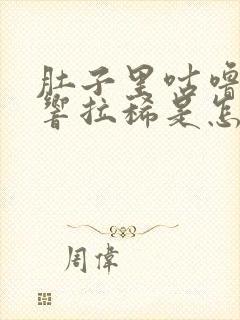 肚子里咕噜
响拉稀是怎
周偉